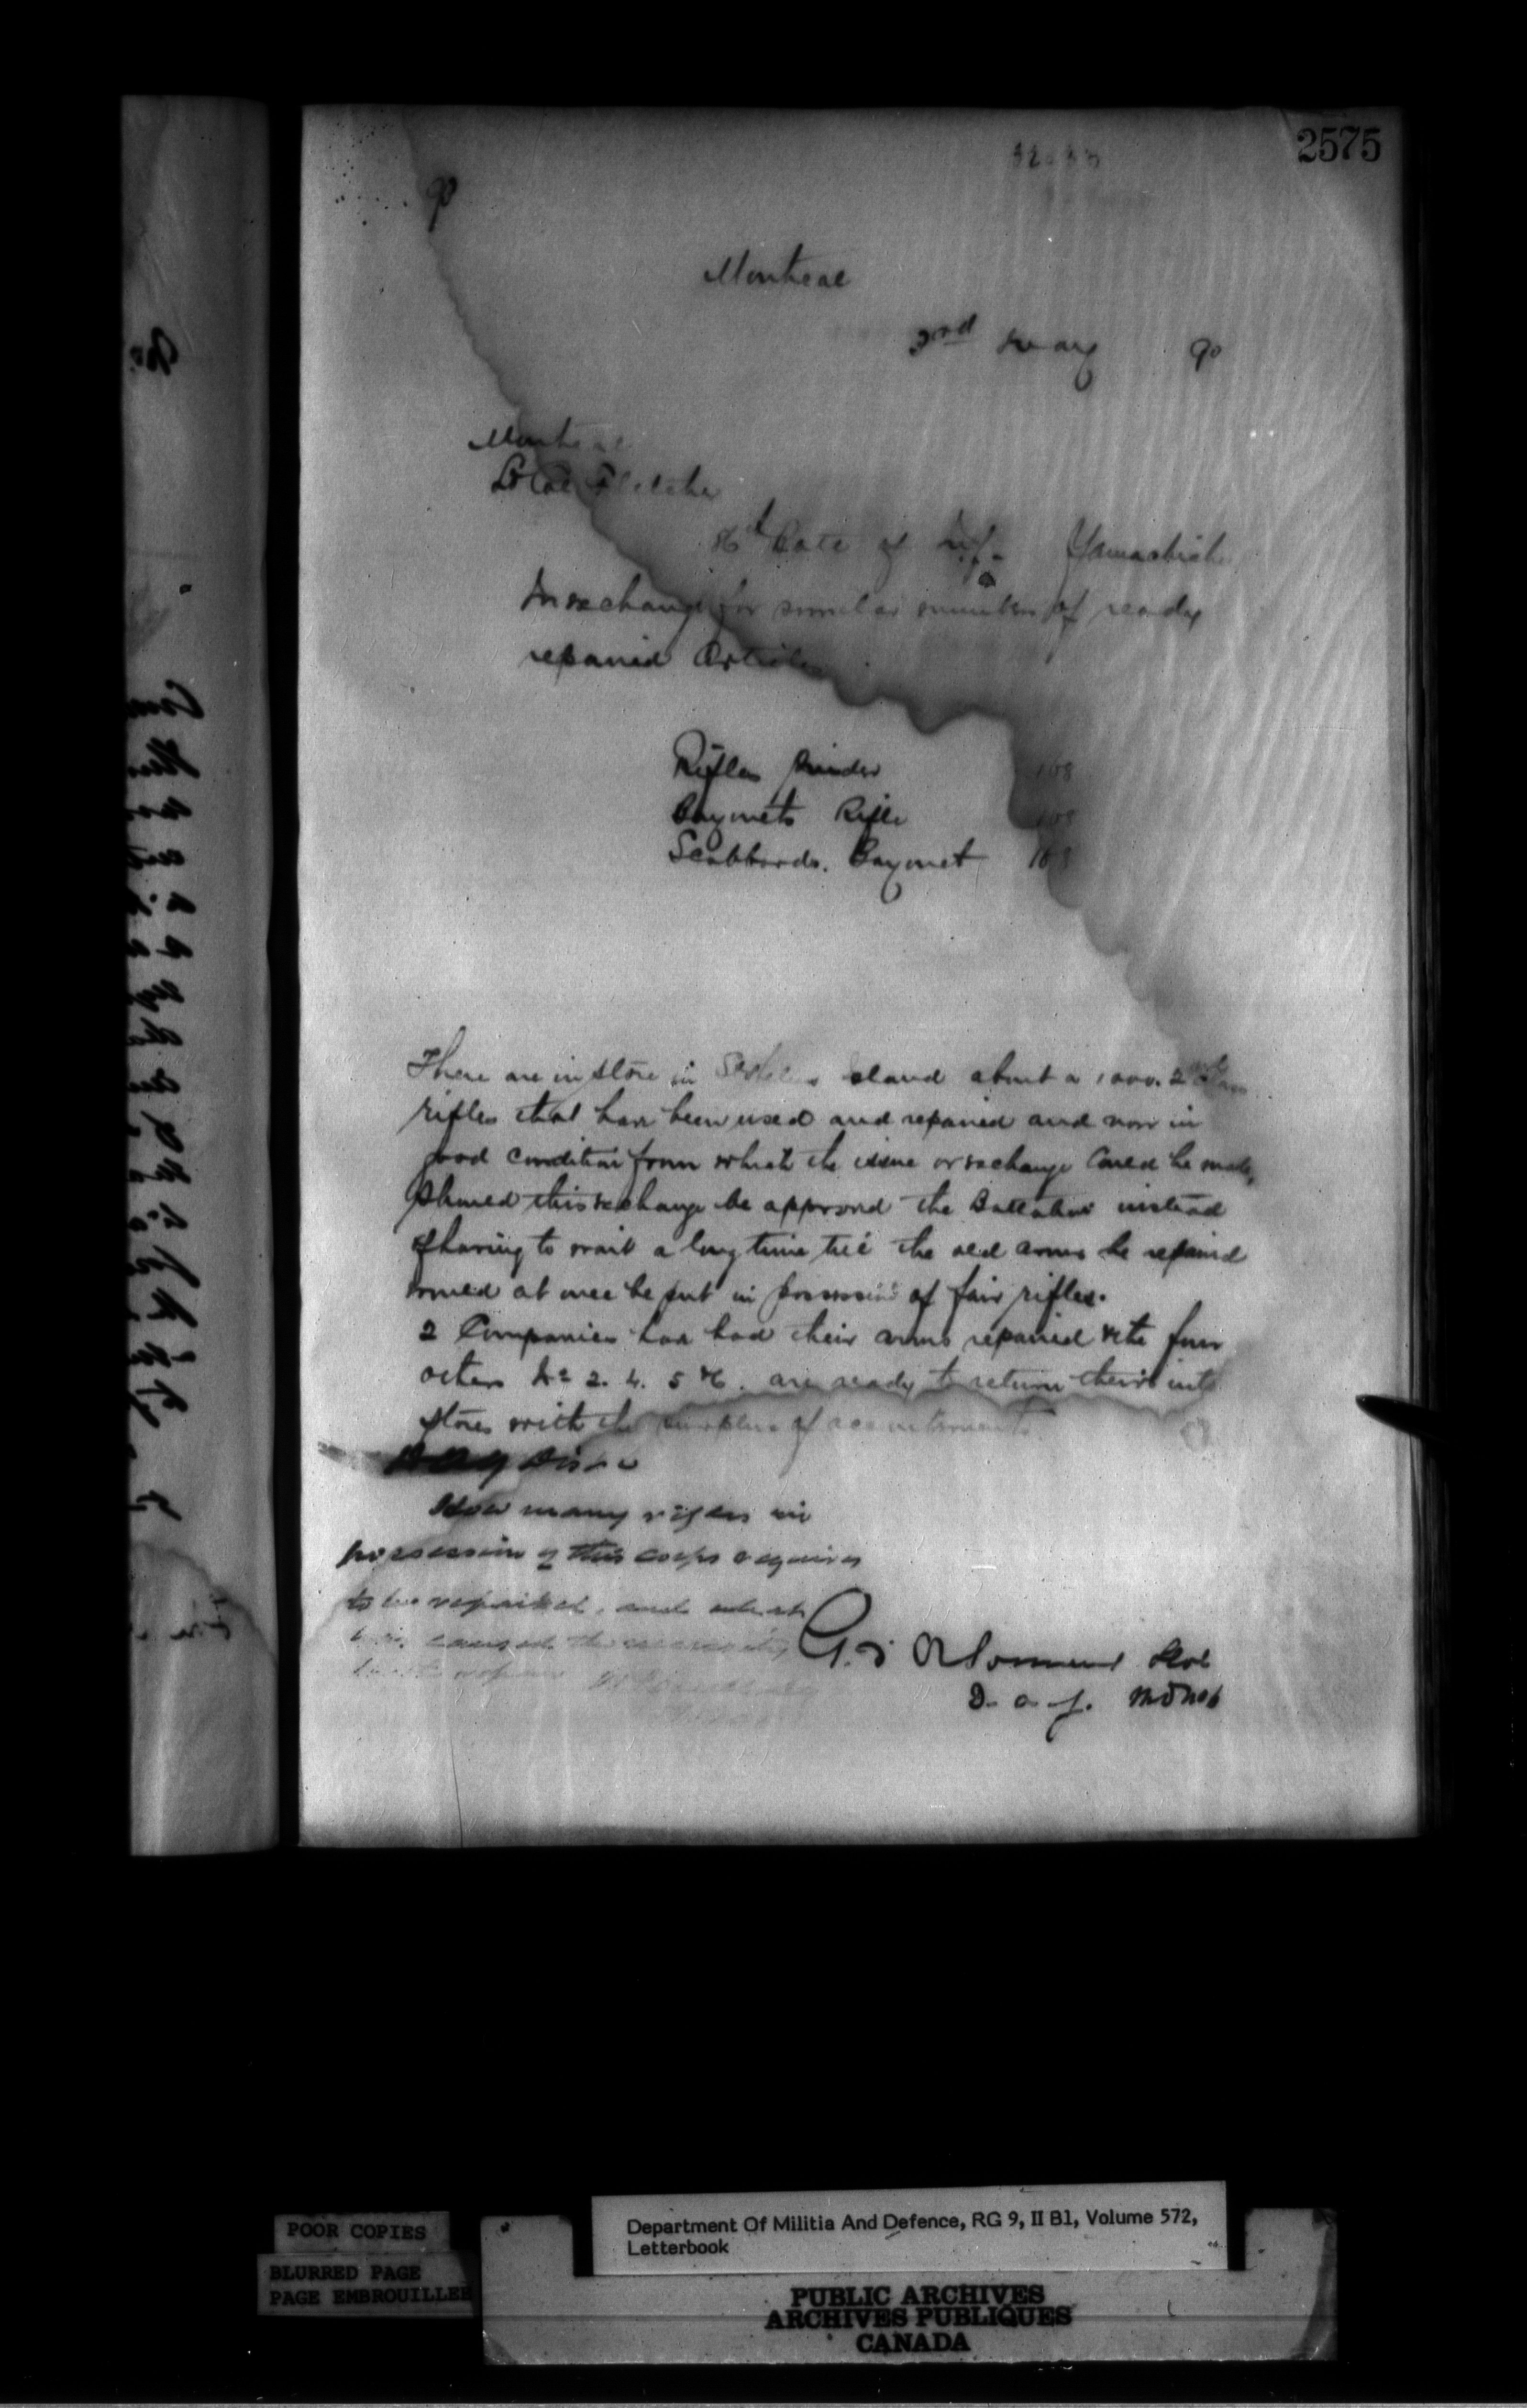 2575
90
Montreal
3rd May 90
Montreal
Lt Col Fletcher
86th Batt of Inf. Yamachiche
In exchange for similar number of ready
repaired Articles
Rifles Snider 168
Bayonets Rifle 168
Scabbards. Bayonet 168
There are in store in St Helens Island about a 1000. 2nd Class
rifles that have been used and repaired and now in
good condition from which the issue or exchange could be made,
Should this exchange be approved the Battalion instead
of having to wait a long time till the old arms be repaired
would at once be put in possession of fair rifles.
2 Companies have had their arms repaired & the four
others No 2. 4. 5 & 6. are ready to return theirs into
store with the surplus of accoutrements
DAG Dis
How many rifles in
possession of this corps requires
to be repaired, and what
has caused the necessity
G. d'O Lt Col
D. a. g. MD No 6
POOR COPIES
BLURRED PAGE
PAGE EMBROUILLEE
Department Of Militia And Defence, RG 9, II B1, Volume 572,
Letterbook
PUBLIC ARCHIVES
ARCHIVES PUBLIQUES
CANADA